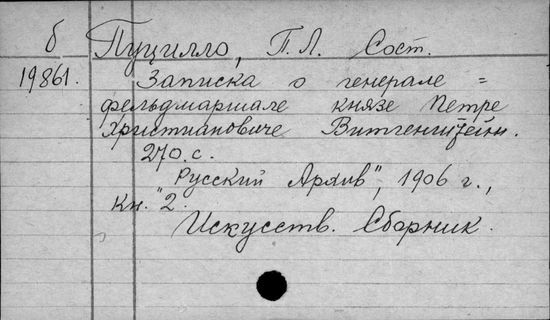 б Пуцилло, П. Л. Сост.
19861. Записка о генерале =
фельдмаршале князе Петре
Христиановиче Витгенштейн.
270. с.
"Русский Архив", 1906 г.,
кн. 2.
Искусств. Сборник.